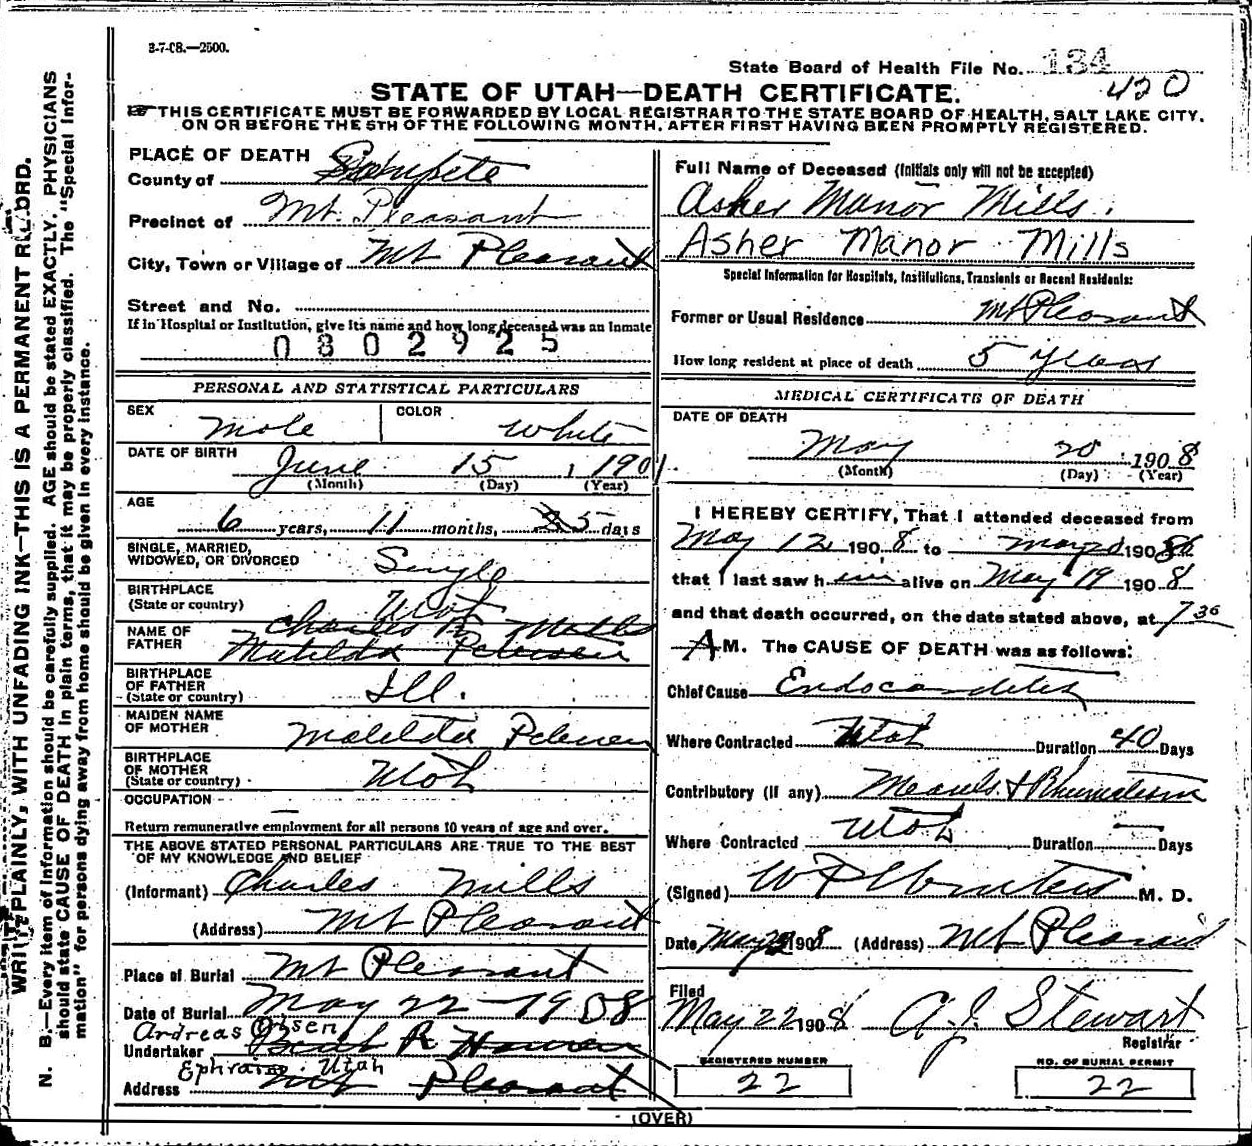 3-7-08.—2500.
State Board of Health File No. 134
420
STATE OF UTAH—DEATH CERTIFICATE.
THIS CERTIFICATE MUST BE FORWARDED BY LOCAL REGISTRAR TO THE STATE BOARD OF HEALTH, SALT LAKE CITY,
ON OR BEFORE THE 5TH OF THE FOLLOWING MONTH, AFTER FIRST HAVING BEEN PROMPTLY REGISTERED.
WRITE PLAINLY, WITH UNFADING INK—THIS IS A PERMANENT RECORD.
N. B.—Every item of information should be carefully supplied. AGE should be stated EXACTLY. PHYSICIANS
should state CAUSE OF DEATH in plain terms, that it may be properly classified. The "Special Infor-
mation" for persons dying away from home should be given in every instance.
PLACE OF DEATH
County of Sanpete
Precinct of Mt. Pleasant
City, Town or Village of Mt Pleasant
Street and No.
If in Hospital or Institution, give its name and how long deceased was an Inmate
0802925
PERSONAL AND STATISTICAL PARTICULARS
SEX Male COLOR White
DATE OF BIRTH June 15, 1901.
(Month) (Day) (Year)
AGE
6 years, 11 months, 5 days
SINGLE, MARRIED,
WIDOWED, OR DIVORCED Single
BIRTHPLACE
(State or country) Utah
NAME OF
FATHER Charles Mills
Matilda Petersen
BIRTHPLACE
OF FATHER
(State or country) Ill.
MAIDEN NAME
OF MOTHER Matilda Petersen
BIRTHPLACE
OF MOTHER
(State or country) Utah
OCCUPATION —
Return remunerative employment for all persons 10 years of age and over.
THE ABOVE STATED PERSONAL PARTICULARS ARE TRUE TO THE BEST
OF MY KNOWLEDGE AND BELIEF
(Informant) Charles Mills
(Address) Mt Pleasant
Place of Burial Mt Pleasant
Date of Burial May 22 - 1908
Andreas Olsen
Undertaker
Ephraim Utah
Address Mt Pleasant
Full Name of Deceased (Initials only will not be accepted)
Asher Manor Mills.
Asher Manor Mills
Special Information for Hospitals, Institutions, Transients or Recent Residents:
Former or Usual Residence Mt Pleasant
How long resident at place of death 5 years
MEDICAL CERTIFICATE OF DEATH
DATE OF DEATH
May 20 1908
(Month) (Day) (Year)
I HEREBY CERTIFY, That I attended deceased from
May 12 1908 to May 20 1908
that I last saw him alive on May 19 1908
and that death occurred, on the date stated above, at 7 30
AM. The CAUSE OF DEATH was as follows:
Chief Cause Endocarditis
Where Contracted Utah Duration 40 Days
Contributory (if any) Measels & Rhumatism
Where Contracted Utah Duration — Days
(Signed) M. D.
Date May 1908 (Address) Mt Pleasant
Filed
May 22 1908 A.J. Stewart
Registrar
REGISTERED NUMBER
22
NO. OF BURIAL PERMIT
22
(OVER)